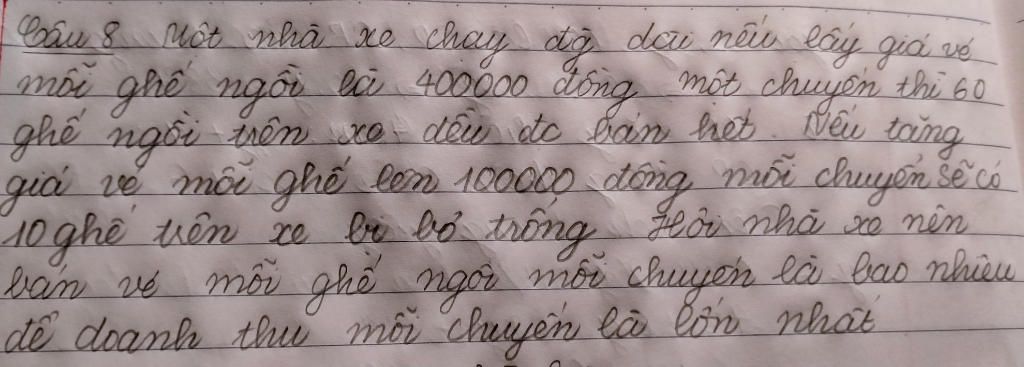 Câu 8 Một nhà xe chạy đg dài nếu lấy giá vé
mỗi ghế ngồi là 400000 đồng một chuyến thì 60
ghế ngồi trên xe đều đc bán hết. Nếu tăng
giá vé mỗi ghế lên 100000 đồng mỗi chuyến sẽ có
10 ghế trên xe bị bỏ trống Hỏi nhà xe nên
bán vé mỗi ghế ngồi mỗi chuyến là bao nhiêu
để doanh thu mỗi chuyến là lớn nhất